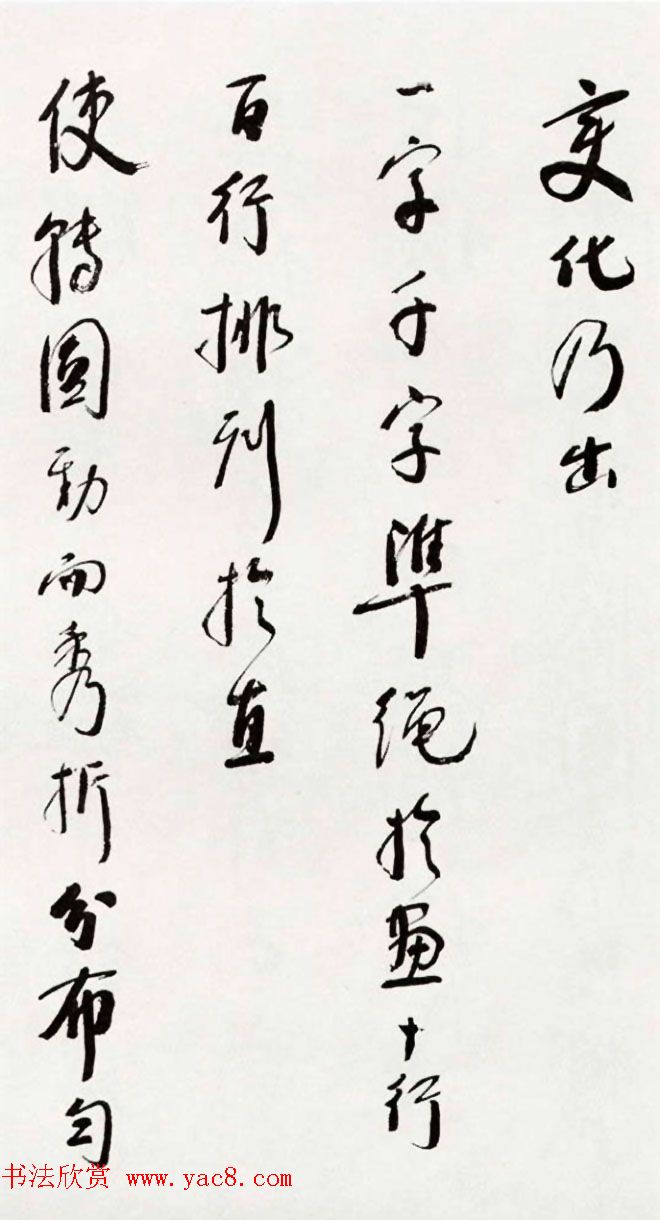 变化乃出
一字千字準绳於画十行
百行排列於直
使转圆劲而秀折分布匀
书法欣赏 www.yac8.com